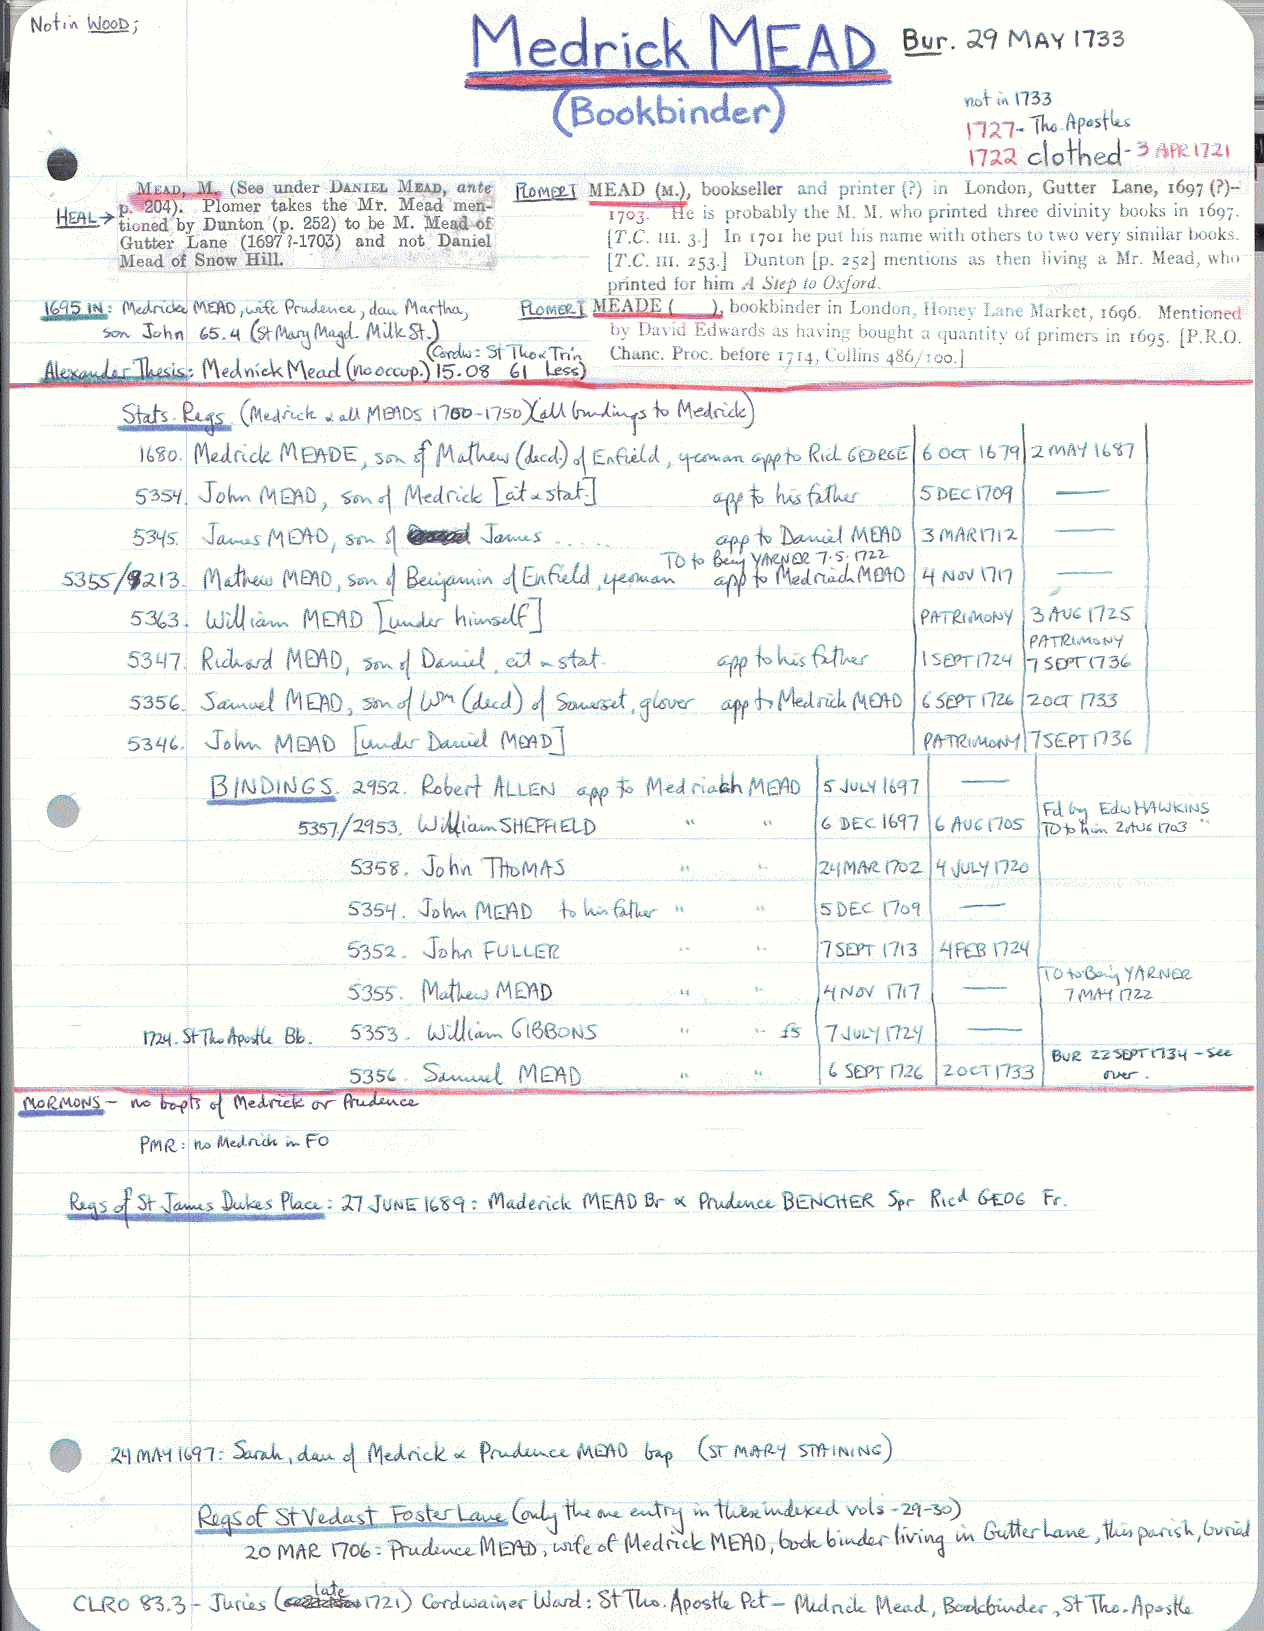 Not in WOOD;
Medrick MEAD
Bur. 29 MAY 1733
(Bookbinder)
not in 1733
1727- Tho. Apostles
1722 clothed - 3 APR 1721
HEAL →
MEAD, M. (See under DANIEL MEAD, ante
p. 204). Plomer takes the Mr. Mead men-
tioned by Dunton (p. 252) to be M. Mead of
Gutter Lane (1697 ?-1703) and not Daniel
Mead of Snow Hill.
PLOMER I MEAD (M.), bookseller and printer (?) in London, Gutter Lane, 1697 (?)–
1703. He is probably the M. M. who printed three divinity books in 1697.
[T.C. III. 3.] In 1701 he put his name with others to two very similar books.
[T.C. III. 253.] Dunton [p. 252] mentions as then living a Mr. Mead, who
printed for him A Step to Oxford.
PLOMER I MEADE ( ), bookbinder in London, Honey Lane Market, 1696. Mentioned
by David Edwards as having bought a quantity of primers in 1695. [P.R.O.
Chanc. Proc. before 1714, Collins 486/100.]
1695 IN: Medricke MEAD, wife Prudence, dau Martha,
son John 65.4 (St Mary Magd. Milk St.)
(Cordw: St Tho & Trin
Alexander Thesis: Mednick Mead (no occup.) 15.08 61 Less)
Stats. Regs (Medrick & all MEADS 1700-1750) (all bindings to Medrick)
1680. Medrick MEADE, son of Mathew (decd) of Enfield, yeoman app to Rich GEORGE 6 OCT 1679 2 MAY 1687
5354. John MEAD, son of Medrick [cit & stat.] app to his father 5 DEC 1709 —
5345. James MEAD, son of James ...... app to Daniel MEAD 3 MAR 1712 —
TO to Benj YARNER 7.5.1722
5355/8213. Mathew MEAD, son of Benjamin of Enfield, yeoman app to Medriach MEAD 4 NOV 1717 —
5363. William MEAD [under himself] PATRIMONY 3 AUG 1725
PATRIMONY
5347. Richard MEAD, son of Daniel, cit & stat. app to his father 1 SEPT 1724 7 SEPT 1736
5356. Samuel MEAD, son of Wm (decd) of Somerset, glover app to Medrick MEAD 6 SEPT 1726 2 OCT 1733
5346. John MEAD [under Daniel MEAD] PATRIMONY 7 SEPT 1736
BINDINGS. 2952. Robert ALLEN app to Medriakh MEAD 5 JULY 1697 —
Fd by Edw HAWKINS
5357/2953. William SHEFFIELD " " 6 DEC 1697 6 AUG 1705 TO to him 2 AUG 1703 "
5358. John THOMAS " " 24 MAR 1702 4 JULY 1720
5354. John MEAD to his father " " 5 DEC 1709 —
5352. John FULLER " " 7 SEPT 1713 4 FEB 1724
TO to Benj YARNER
5355. Mathew MEAD " " 4 NOV 1717 — 7 MAY 1722
1724. St Tho Apostle Bb. 5353. William GIBBONS " " £5 7 JULY 1724 —
BUR 22 SEPT 1734 - see
5356. Samuel MEAD " " 6 SEPT 1726 2 OCT 1733 over.
MORMONS - no bapts of Medrick or Prudence
PMR: no Medrich in FO
Regs of St James Dukes Place: 27 JUNE 1689: Maderick MEAD Br & Prudence BENCHER Spr Ricd GEOG Fr.
24 MAY 1697: Sarah, dau of Medrick & Prudence MEAD bap (ST MARY STAINING)
Regs of St Vedast Foster Lane (only the one entry in these indexed vols - 29-30)
20 MAR 1706: Prudence MEAD, wife of Medrick MEAD, bookbinder living in Gutter Lane, this parish, buried
late
CLRO 83.3 - Juries ( 1721) Cordwainer Ward: St Tho. Apostle Pct - Medrick Mead, Bookbinder, St Tho. Apostle